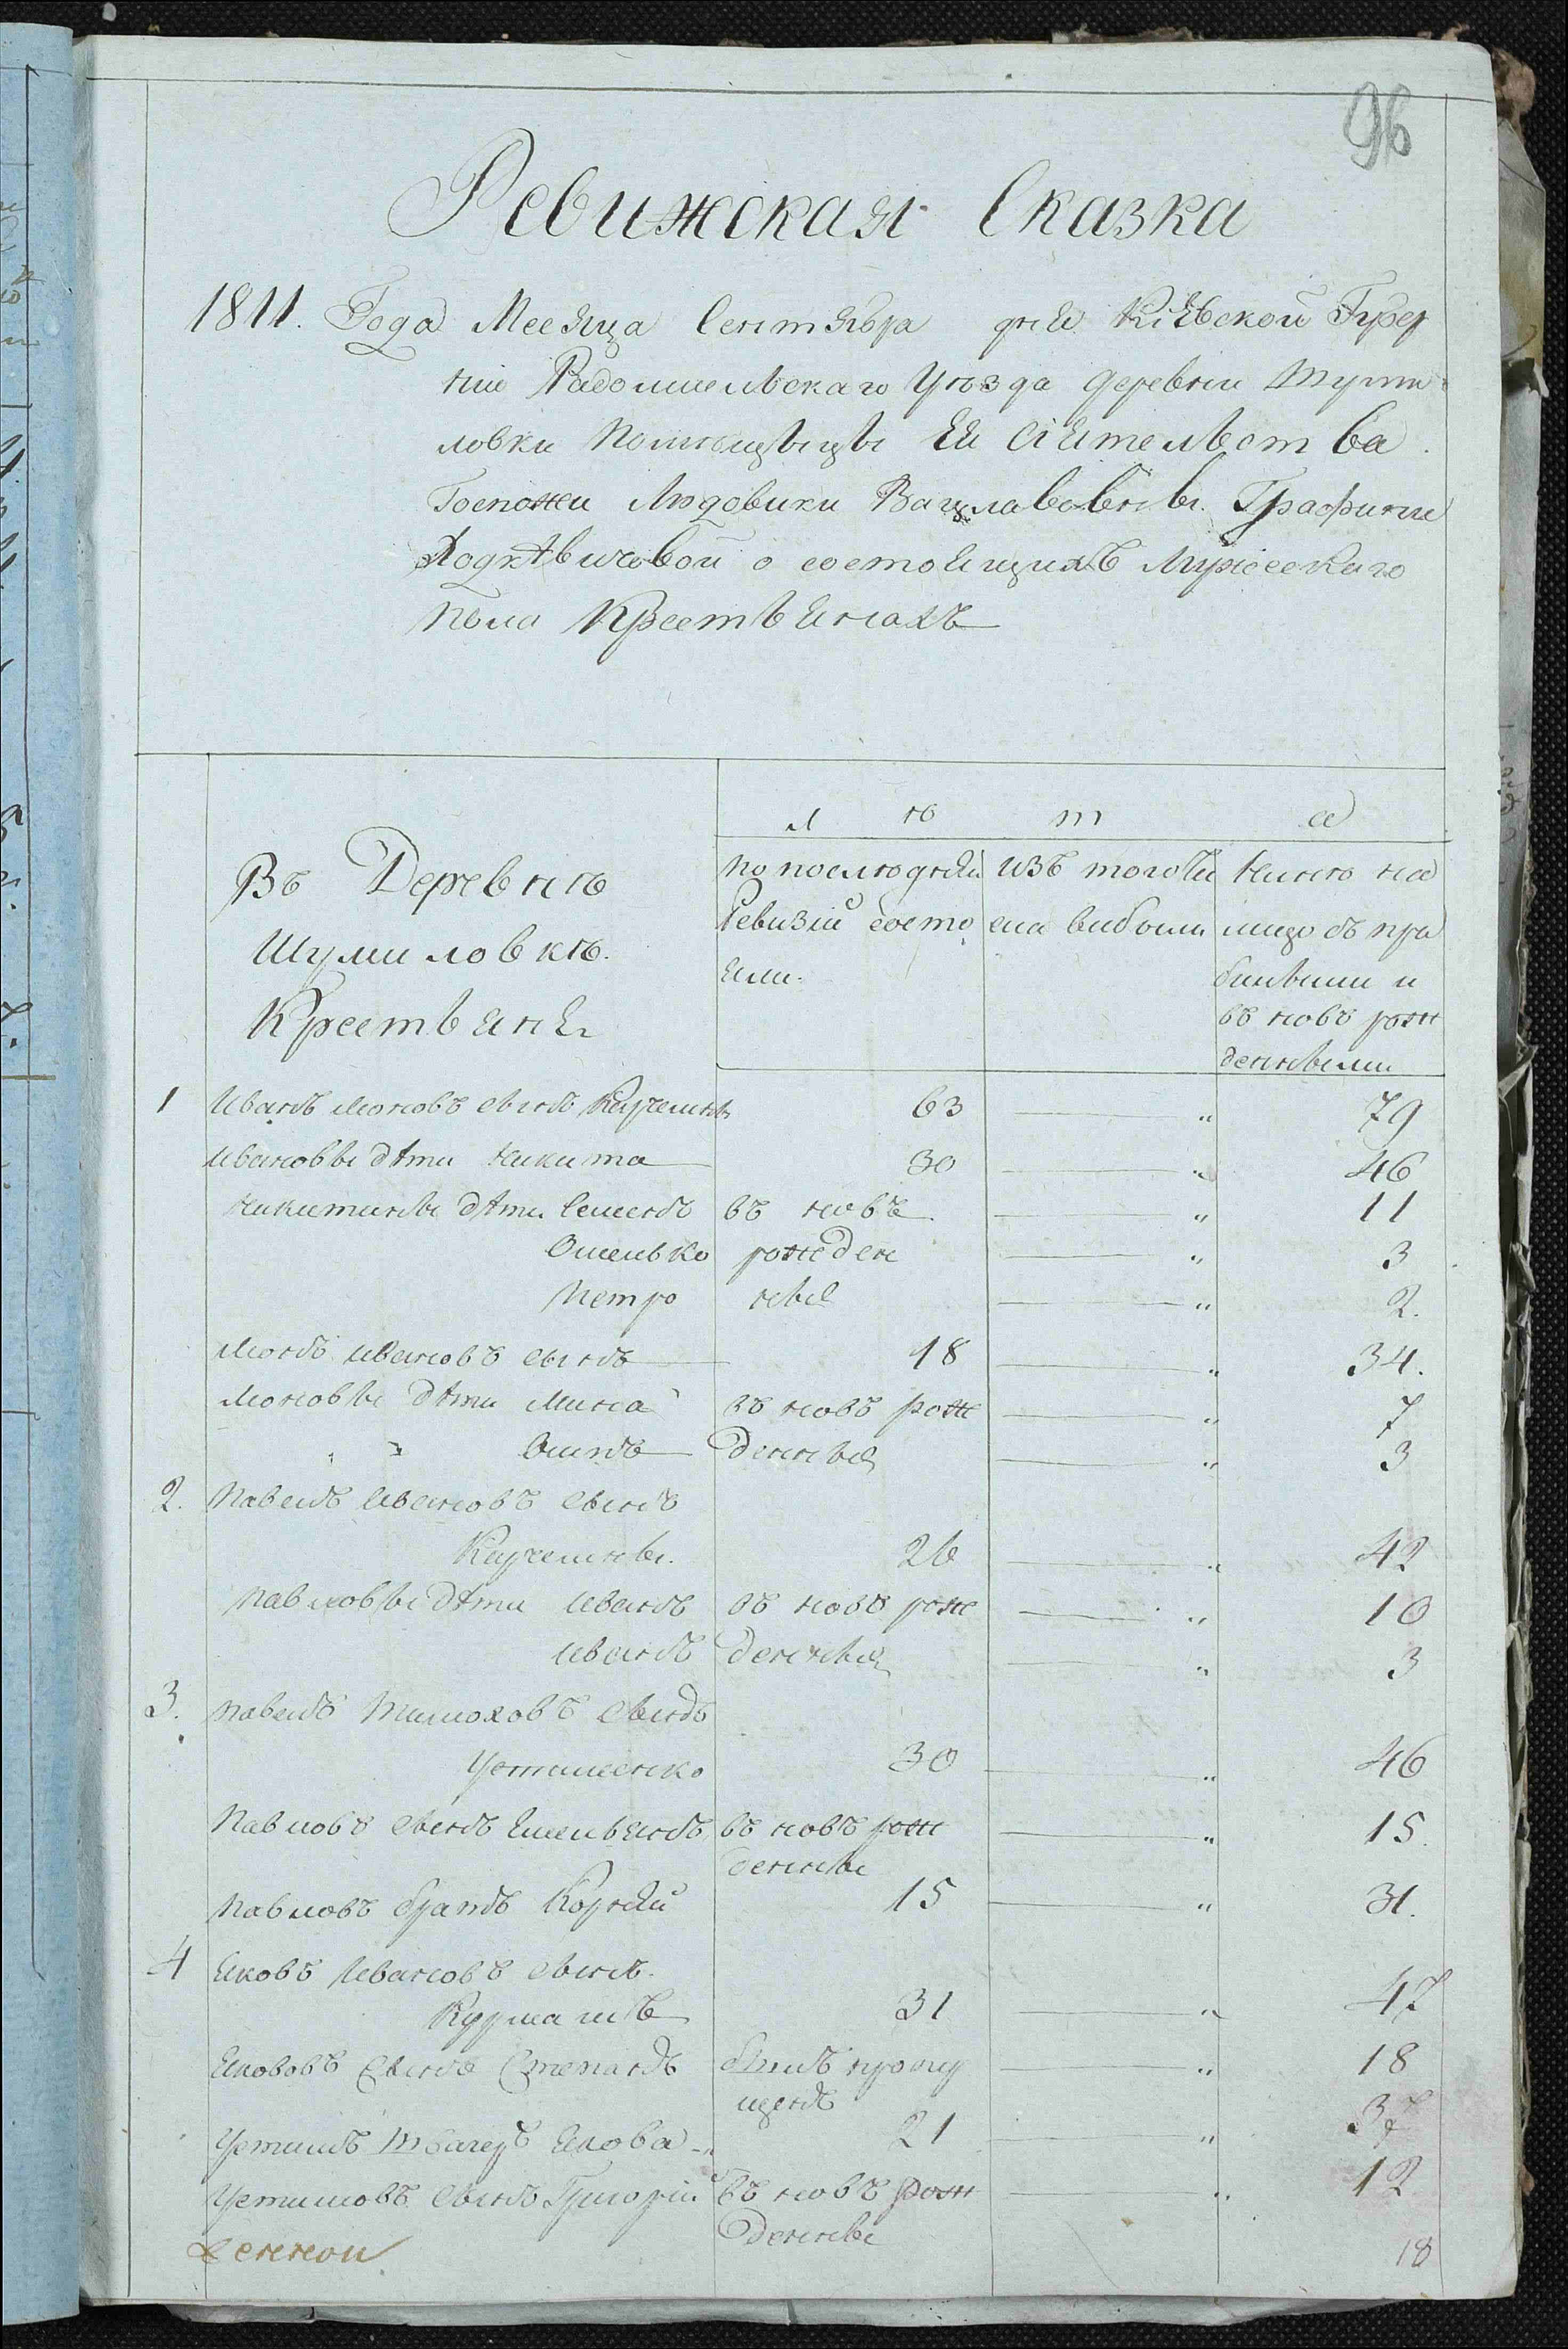 96
Ревижская Сказка
1811. Года Месяца Сентября дня Кіевской Губер
ніи Радомисльскаго Уѣзда деревни Шуми
ловки Помѣщыцы Ея Сіятельства
Госпожи Людовики Вацлавовны Графини
Ходкѣвичовой о состоящихъ Мужескаго
пола Крестьянахъ
Л ѣ т а
Въ Деревнѣ
Шумиловкѣ
Крестьяня
по последней
Ревизіи состо
яли
изъ того чи
сла выбыли
Нынѣ на
лицо съ при
бывшыми и
въ новъ рож
денными
1 Иванъ Моновъ сынъ 63 — " 79
Ивановы дѣти Никита 30 — " 46
Никитины дѣти Семенъ въ новъ — " 11
Омелько рожден — " 3
Петро ные — " 2.
Монъ Ивановъ сынъ 18 — " 34.
Моновы дѣти Мина въ новъ рож — " 7
" " Осипъ денные — " 3
2. Павелъ Ивановъ сынъ
26 — " 42
Павловы дѣти Иванъ въ новъ рож — " 10
Иванъ денные — " 3
3. Павелъ Тимоховъ сынъ
Устименко 30 — " 46
Павловъ сынъ Емельянъ въ новъ рож — " 15.
денны
Павловъ братъ Корней 15 — " 31.
4 Яковъ Ивановъ сынъ
31 — " 47
Якововъ сынъ Степанъ былъ пропу — " 18
щенъ
Устимъ Швагеръ Якова 21 — " 37
Устимовъ сынъ Григорій въ новъ рож — " 12
денны
18